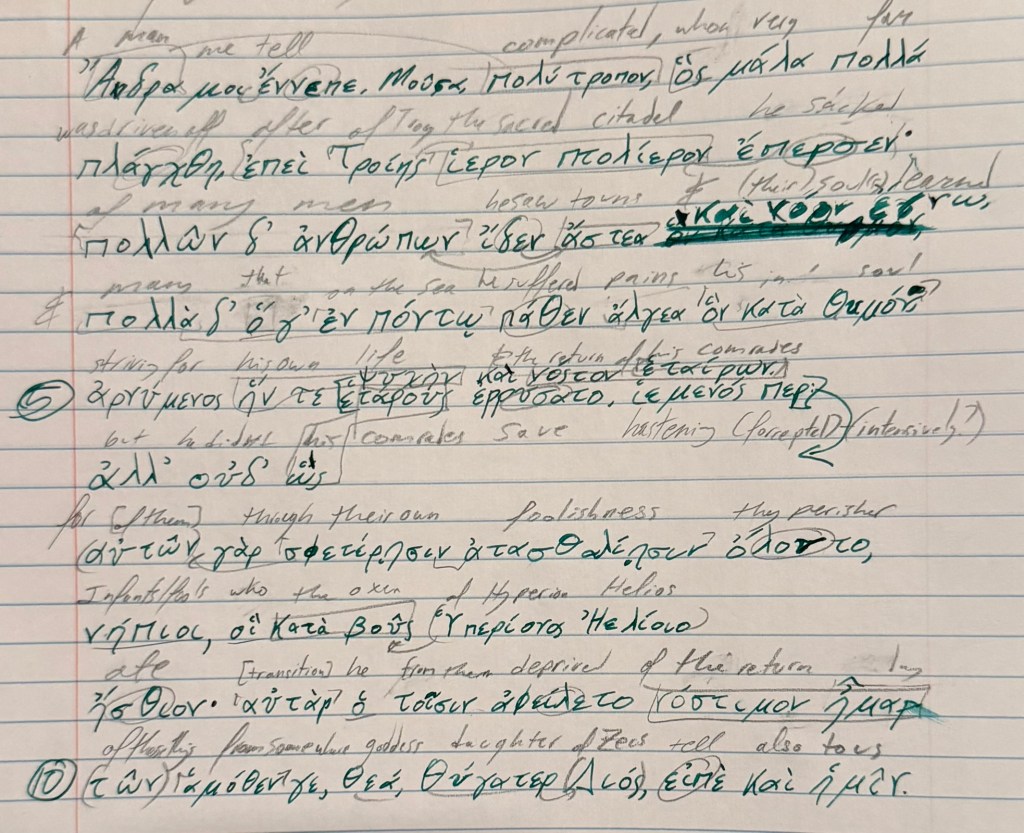 A man me tell complicated, whom very far
Ἄνδρα μοι ἔννεπε, Μοῦσα, πολύτροπον, ὃς μάλα πολλὰ
was driven off after of Troy the sacred citadel he sacked
πλάγχθη, ἐπεὶ Τροίης ἱερον πτολίερον ἔπερσεν·
of many men he saw towns & (their) soul(s) learned
πολλῶν δ' ἀνθρώπων ἴδεν ἄστεα καὶ νοον ἔγνω,
& many that on the sea he suffered pains his in soul
πολλὰ δ' ὅ γ' ἐν πόντῳ πάθεν ἄλγεα ὃν κατὰ θυμόν,
striving for his own life & the return of his comrades
ψυχὴν καὶ νόστον ἑταίρων.
⑤ ἀρνύμενος ἥν τε ἑτάρους ἐρρύσατο, ἱέμενός περ·
but he did not his comrades save hastening (forcepted) (intensively?)
ἀλλ' οὐδ' ὣς
for [of them] through their own foolishness they perished
αὐτῶν γὰρ σφετέρῃσιν ἀτασθαλίῃσιν ὄλοντο,
Infants/fools who the oxen of Hyperion Helios
νήπιοι, οἳ κατὰ βοῦς Ὑπερίονος Ἠελίοιο
ate [transition] he from them deprived of the return day
ἤσθιον· αὐτὰρ ὁ τοῖσιν ἀφείλετο νόστιμον ἦμαρ
of these things from somewhere goddess daughter of Zeus tell also to us
⑩ τῶν ἁμόθεν γε, θεά, θύγατερ Διός, εἰπὲ καὶ ἡμῖν.